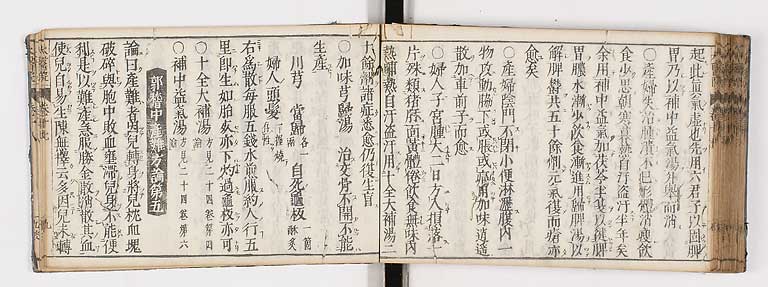 起此眞氣虛也先用六君子以固脾
胃乃以補中益氣湯升擧而消
○產婦失治腫潰不已形體消瘦飲
食少思朝寒暮熱自汗盗汗半年矣
余用補中益氣加茯苓半夏以健脾
胃膿水漸少飲食漸進用歸脾湯以
解脾欝共五十餘劑元氣復而瘡亦
愈矣
○產婦陰門不閉小便淋瀝腹內一
物攻動脇下或脹或痛用加味逍遥
散加車前子而愈
○婦人子宮腫大二日方入損落一
片殊類猪肝面黃體倦飲食無味內
熱晡熱自汗盗汗用十全大補湯二
十餘劑諸症悉愈仍復生育
○加味芎歸湯 治交骨不開不能
生產
川芎 當歸各一兩 自死龜板一箇酥炙
婦人頭髮一握燒存性
右爲散每服五錢水煎服約人行五
里即生如胎死亦下灼過龜板亦可
○十全大補湯方見二十四卷第四論
○補中益氣湯方見二十四卷第六論
郭稽中產難方論第五
論曰產難者因兒轉身將兒枕血塊
破碎與胞中敗血壅滯兒身不能便
利是以難產急服勝金散消散其血
使兒自易生陳無擇云多因兒未轉